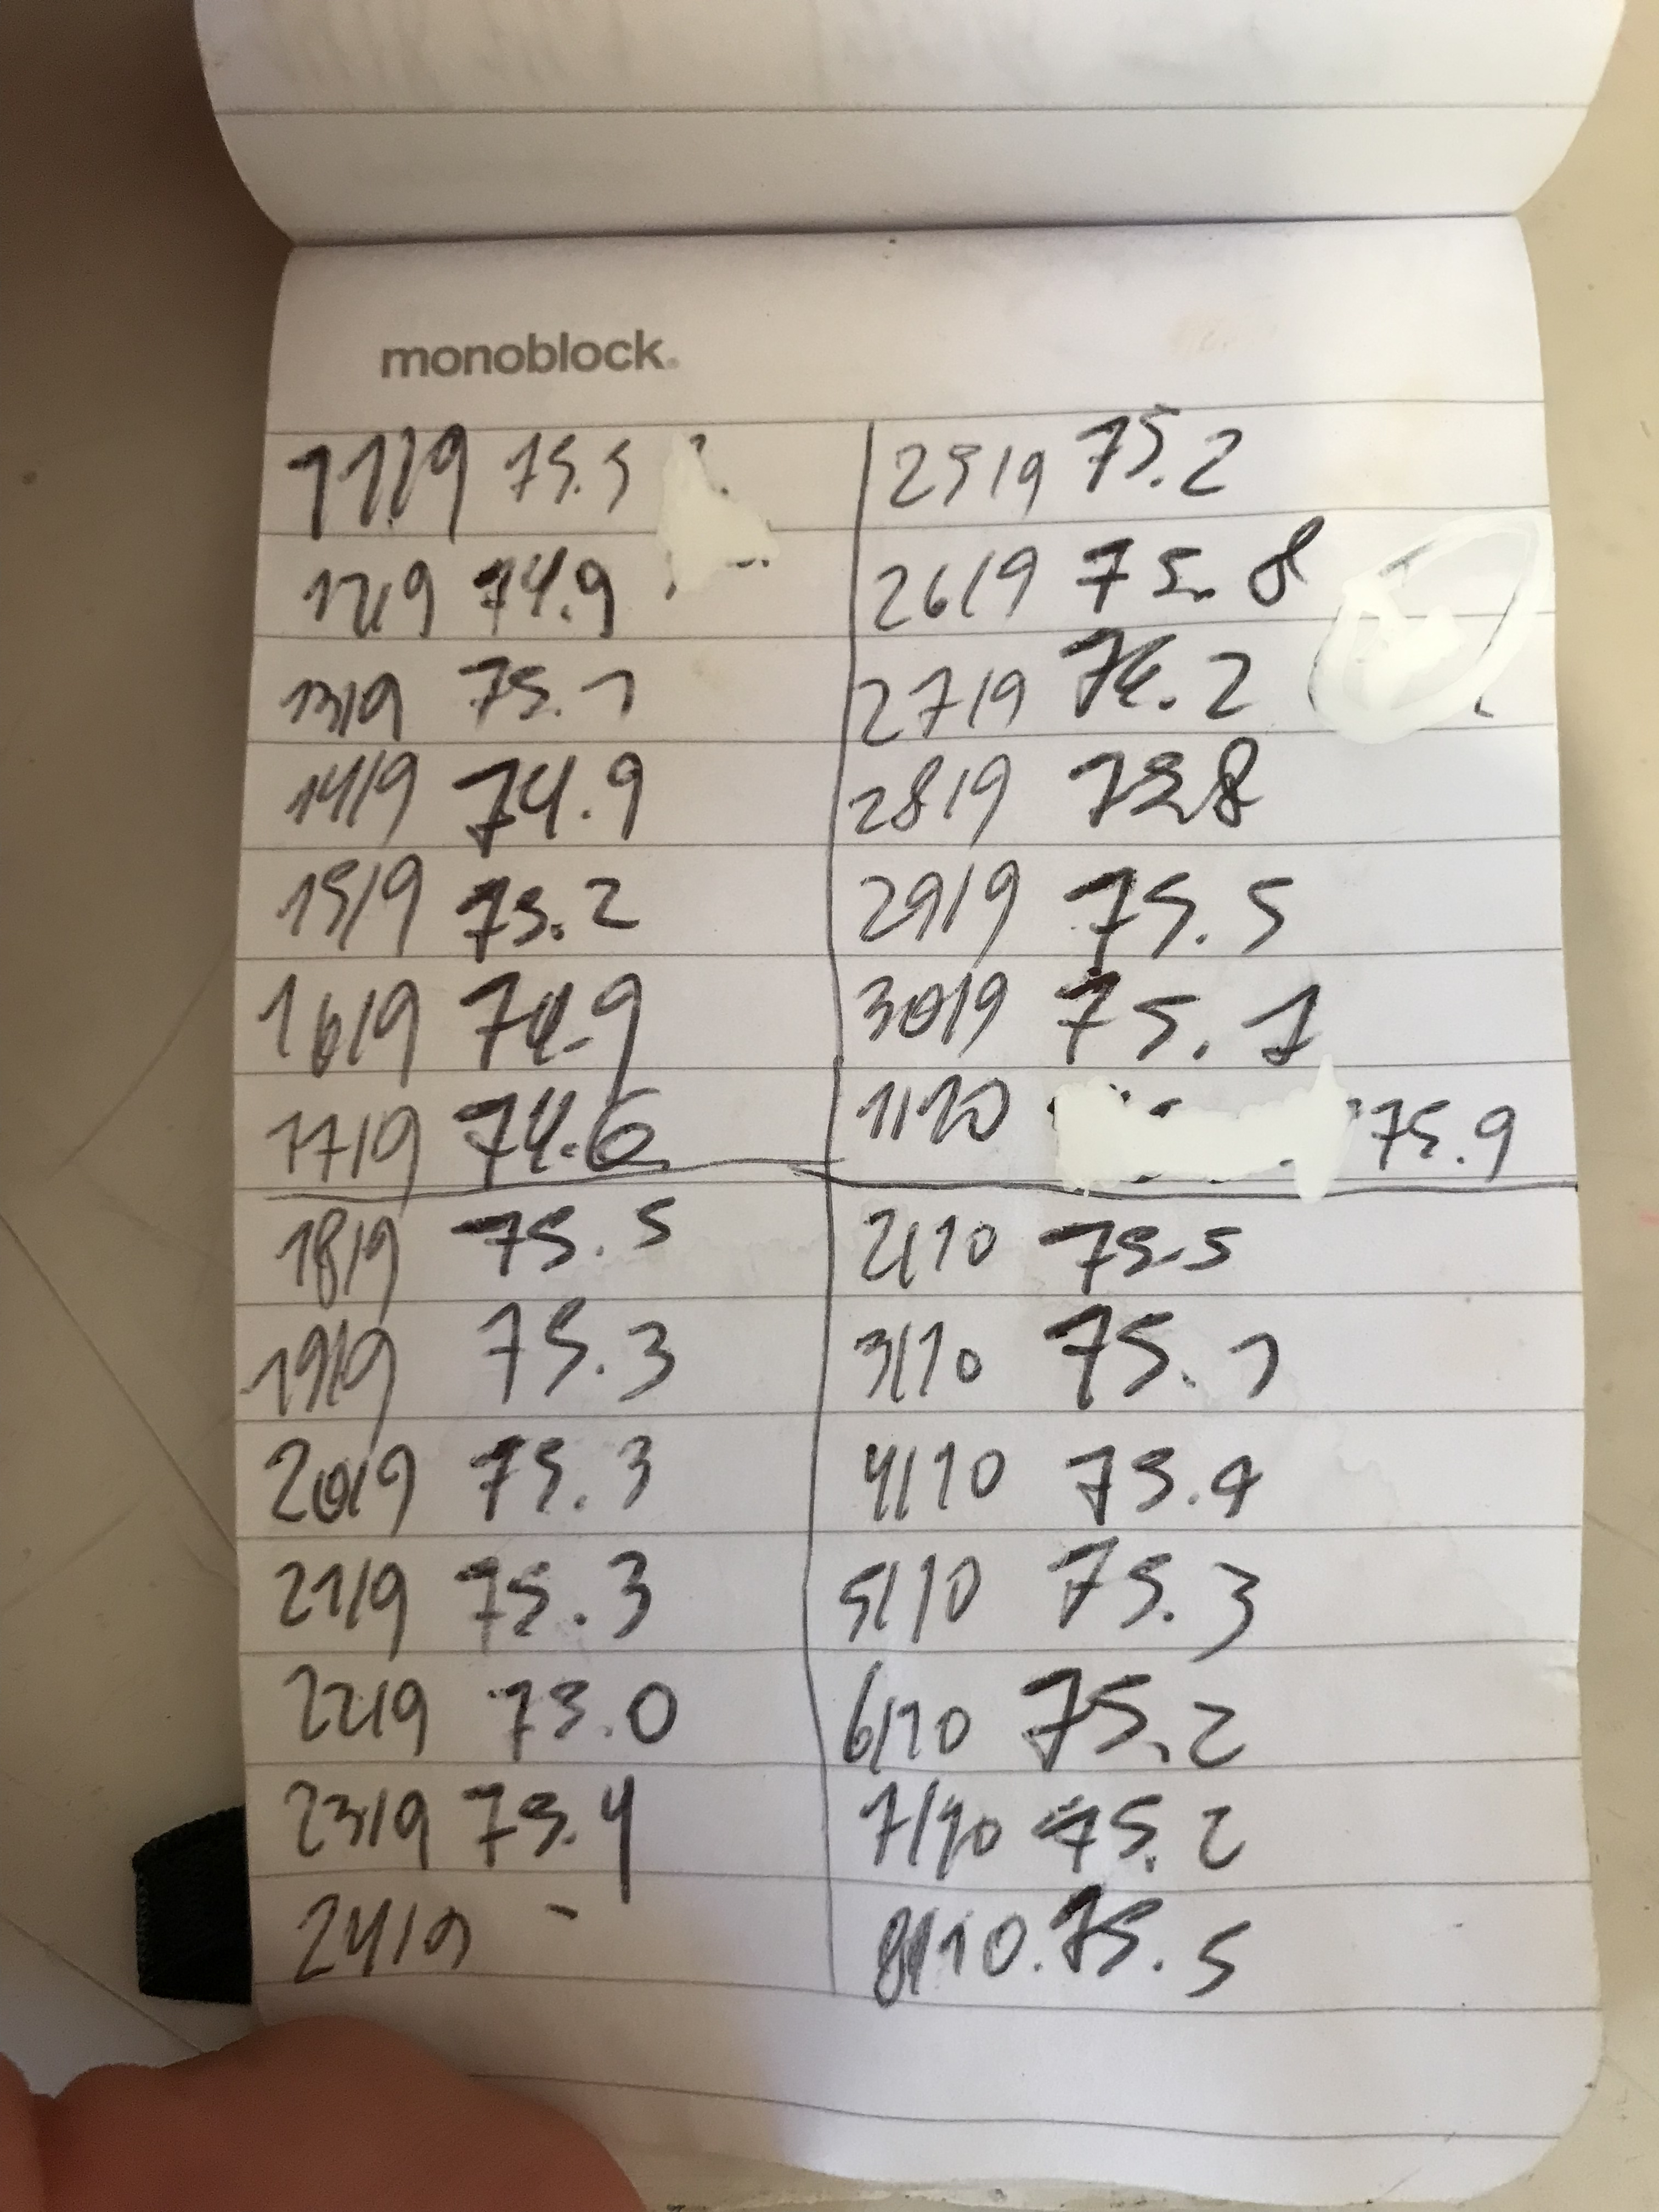 monoblock.
11/9 75.5
12/9 74.9
13/9 75.1
14/9 74.9
15/9 75.2
16/9 74.9
17/9 74.6
18/9 75.5
19/9 75.3
20/9 75.3
21/9 75.3
22/9 75.0
23/9 75.4
24/9 -
25/9 75.2
26/9 75.8
27/9 76.2
28/9 75.8
29/9 75.5
30/9 75.1
1/10 75.9
2/10 75.5
3/10 75.1
4/10 75.4
5/10 75.3
6/10 75.2
7/10 75.2
8/10. 75.5